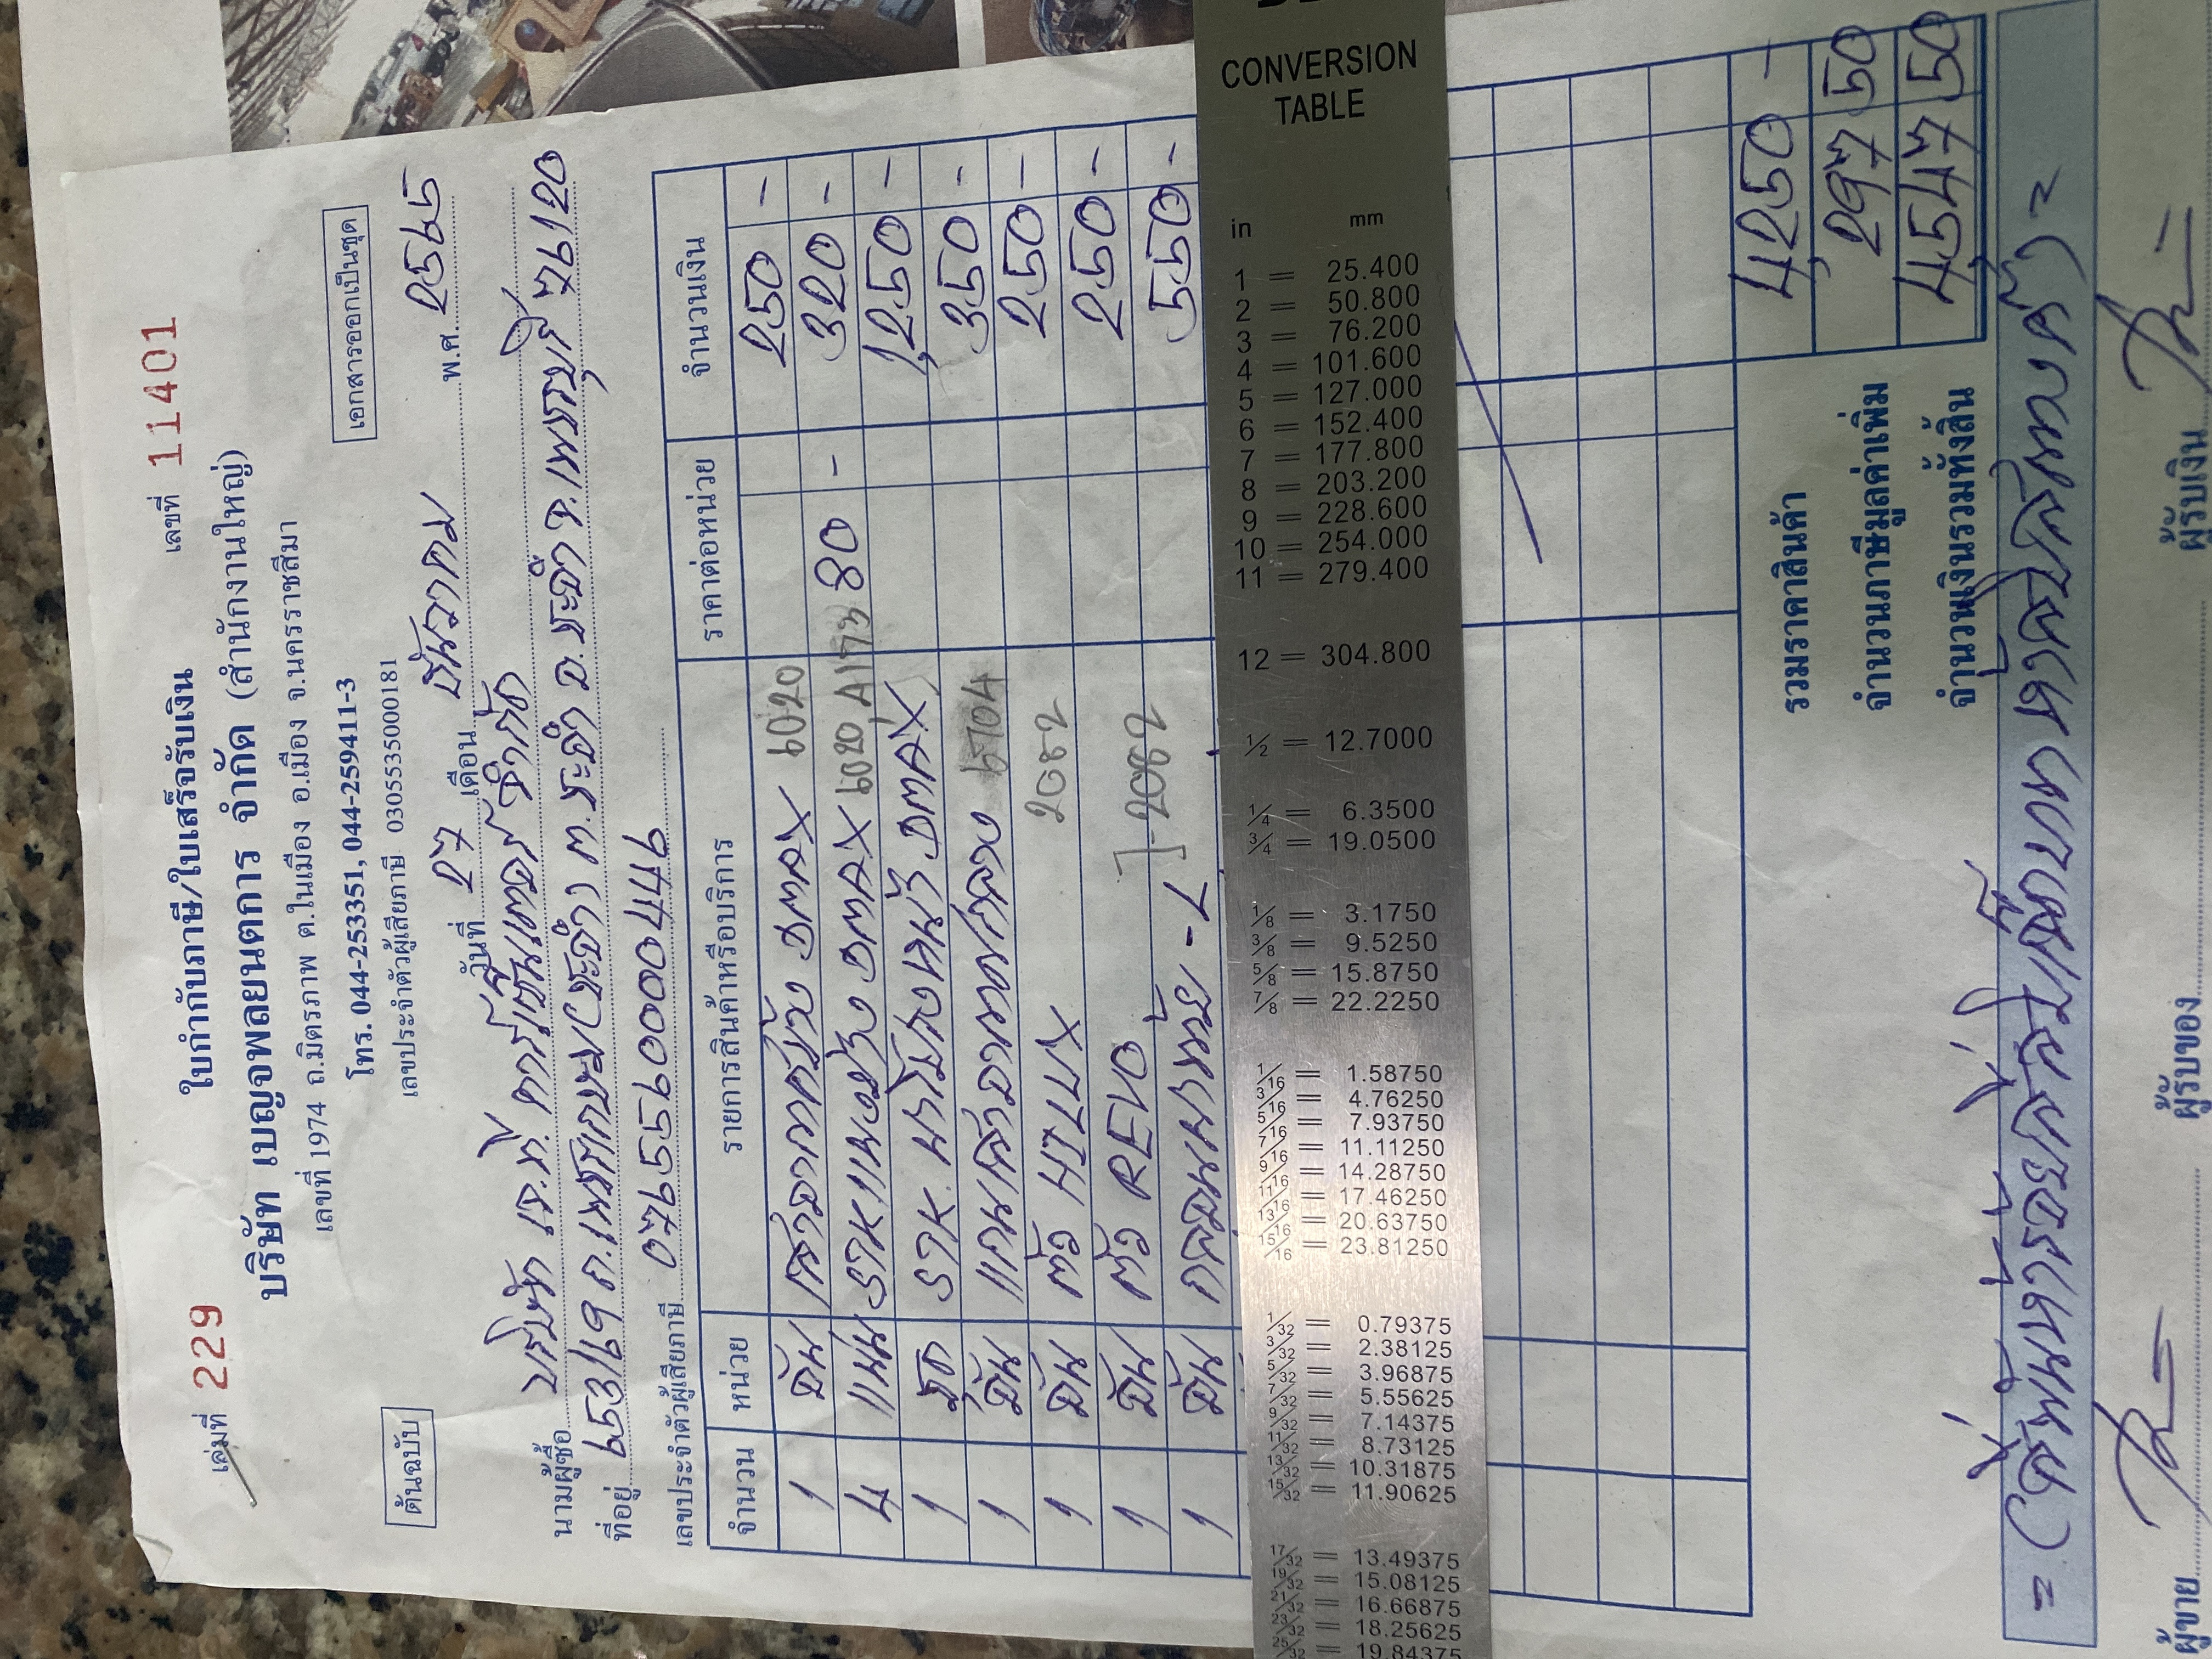 เล่มที่ 229
ใบกำกับภาษี/ใบเสร็จรับเงิน
เลขที่ 11401
บริษัท เบญจพลยนตการ จำกัด (สำนักงานใหญ่)
เลขที่ 1974 ถ.มิตรภาพ ต.ในเมือง อ.เมือง จ.นครราชสีมา
โทร. 044-253351, 044-259411-3
เลขประจำตัวผู้เสียภาษี 0305535000181
ต้นฉบับ
เอกสารออกเป็นชุด
วันที่ 27 เดือน ธันวาคม พ.ศ. 2565
นามผู้ซื้อ บริษัท เจ.ที. คาร์เซ็นเตอร์ จำกัด
ที่อยู่ 653/69 ถ.เพชรเกษม(ชะอำ) ต.ชะอำ อ.ชะอำ จ.เพชรบุรี 76120
เลขประจำตัวผู้เสียภาษี 0765560000944
จำนวน หน่วย รายการสินค้าหรือบริการ ราคาต่อหน่วย จำนวนเงิน
1 อัน DMAX 6020 250 -
4 แผ่น DMAX 6020 80 - 320 -
1 ชุด DMAX 1,250 -
1 อัน 350 -
1 อัน ตัว HILUX 2082 250 -
1 อัน ตัว REVO 2082 250 -
1 อัน 550 -
CONVERSION
TABLE
in mm
1 = 25.400
2 = 50.800
3 = 76.200
4 = 101.600
5 = 127.000
6 = 152.400
7 = 177.800
8 = 203.200
9 = 228.600
10 = 254.000
11 = 279.400
12 = 304.800
1/2 = 12.7000
1/4 = 6.3500
3/4 = 19.0500
1/8 = 3.1750
3/8 = 9.5250
5/8 = 15.8750
7/8 = 22.2250
1/16 = 1.58750
3/16 = 4.76250
5/16 = 7.93750
7/16 = 11.11250
9/16 = 14.28750
11/16 = 17.46250
13/16 = 20.63750
15/16 = 23.81250
1/32 = 0.79375
3/32 = 2.38125
5/32 = 3.96875
7/32 = 5.55625
9/32 = 7.14375
11/32 = 8.73125
13/32 = 10.31875
15/32 = 11.90625
17/32 = 13.49375
19/32 = 15.08125
21/32 = 16.66875
23/32 = 18.25625
25/32 = 19.84375
รวมราคาสินค้า 4,250 -
จำนวนภาษีมูลค่าเพิ่ม 297 50
จำนวนเงินรวมทั้งสิ้น 4,547 50
= (สี่พันห้าร้อยสี่สิบเจ็ดบาทห้าสิบสตางค์) =
ผู้ขาย ผู้รับของ ผู้รับเงิน